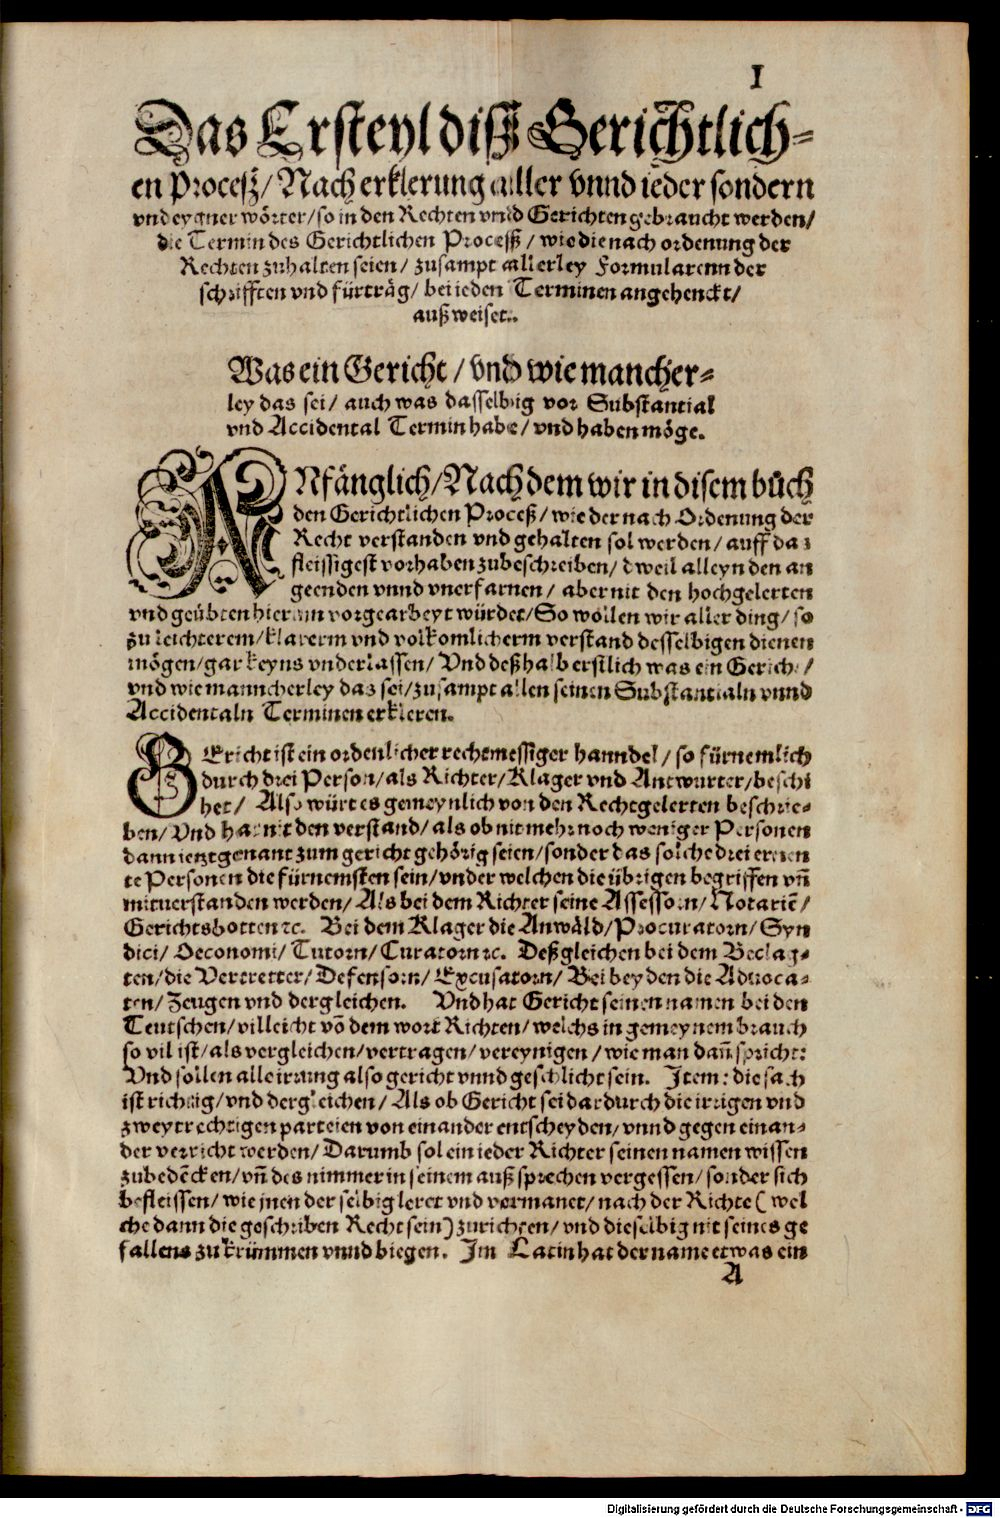 I
Das Ersteyl diß Gerichtlich-
en Proceß/ Nach erklerung aller vnnd ieder sondern
vnd eygner wörter/ so in den Rechten vnnd Gerichten gebraucht werden/
die Termin des Gerichtlichen Processß/ wie die nach ordenung der
Rechten zuhalten seien/ zusampt allerley Formularenn der
schrifften vnd fürträg/ bei ieden Terminen angehenckt/
außweiset..
Was ein Gericht/ vnd wie mancher-
ley das sei/ auch was dasselbig vor Substantial
vnd Accidental Termin habe/ vnd haben möge.
ANfänglich/ Nach dem wir in disem bůch
den Gerichtlichen Proceß/ wie der nach Ordenung der
Recht verstanden vnd gehalten sol werden/ auff das
fleissigest vorhaben zubeschreiben/ dweil alleyn den an
geenden vnnd vnerfarnen/ aber nit den hochgelerten
vnd geübten hierinn vorgearbeyt würdet/ So wöllen wir aller ding/ so
zu leichterem/ klarerm vnd volkomlicherm verstand desselbigen dienen
mögen/ gar keyns vnderlassen/ Vnd deßhalb erstlich was ein Gericht/
vnd wie manncherley das sei/ zusampt allen seinen Substantialn vnnd
Accidentaln Terminen erkleren.
GEricht ist ein ordenlicher rechtmessiger hanndel/ so fürnemlich
durch drei Person/ als Richter/ Klager vnd Antwurter/ beschi
het/ Also würt es gemeynlich von den Rechtgelerten beschrie-
ben/ Vnd hat nit den verstand/ als ob nit mehr noch weniger Personen
dann ietztgenant zum gericht gehörig seien/ sonder das solche drei ernen
te Personen die fürnemsten sein/ vnder welchen die übrigen begriffen vñ
mituerstanden werden/ Als bei dem Richter seine Assessorn/ Notariē/
Gerichtsbotten ꝛc. Bei dem Klager die Anwäld/ Procuratorn/ Syn
dici/ Oeconomi/ Tutorn/ Curatorn ꝛc. Deßgleichen bei dem Beclag-
ten/ die Vertretter/ Defensorn/ Excusatorn/ Bei beyden die Aduoca-
ten/ Zeugen vnd dergleichen. Vnd hat Gericht seinen namen bei den
Teutschen/ villeicht vō dem wort Richten/ welchs in gemeynem brauch
so vil ist/ als vergleichen/ vertragen/ vereynigen/ wie man dañ spricht:
Vnd sollen alle irrung also gericht vnnd geschlicht sein. Item: die sach
ist richtig/ vnd dergleichen/ Als ob Gericht sei dardurch die irrigen vnd
zweytrechtigen parteien von einander entscheyden/ vnnd gegen einan-
der verricht werden/ Darumb sol ein ieder Richter seinen namen wissen
zubedēcken/ vñ des nimmer in seinem außsprechen vergessen/ sonder sich
befleissen/ wie jnen der selbig leret vnd vermanet/ nach der Richte (wel
che dann die geschriben Recht sein) zurichten/ vnd dieselbig nit seines ge
fallens zu krümmen vnnd biegen. Im Latin hat der name etwas ein
A
Digitalisierung gefördert durch die Deutsche Forschungsgemeinschaft - DFG